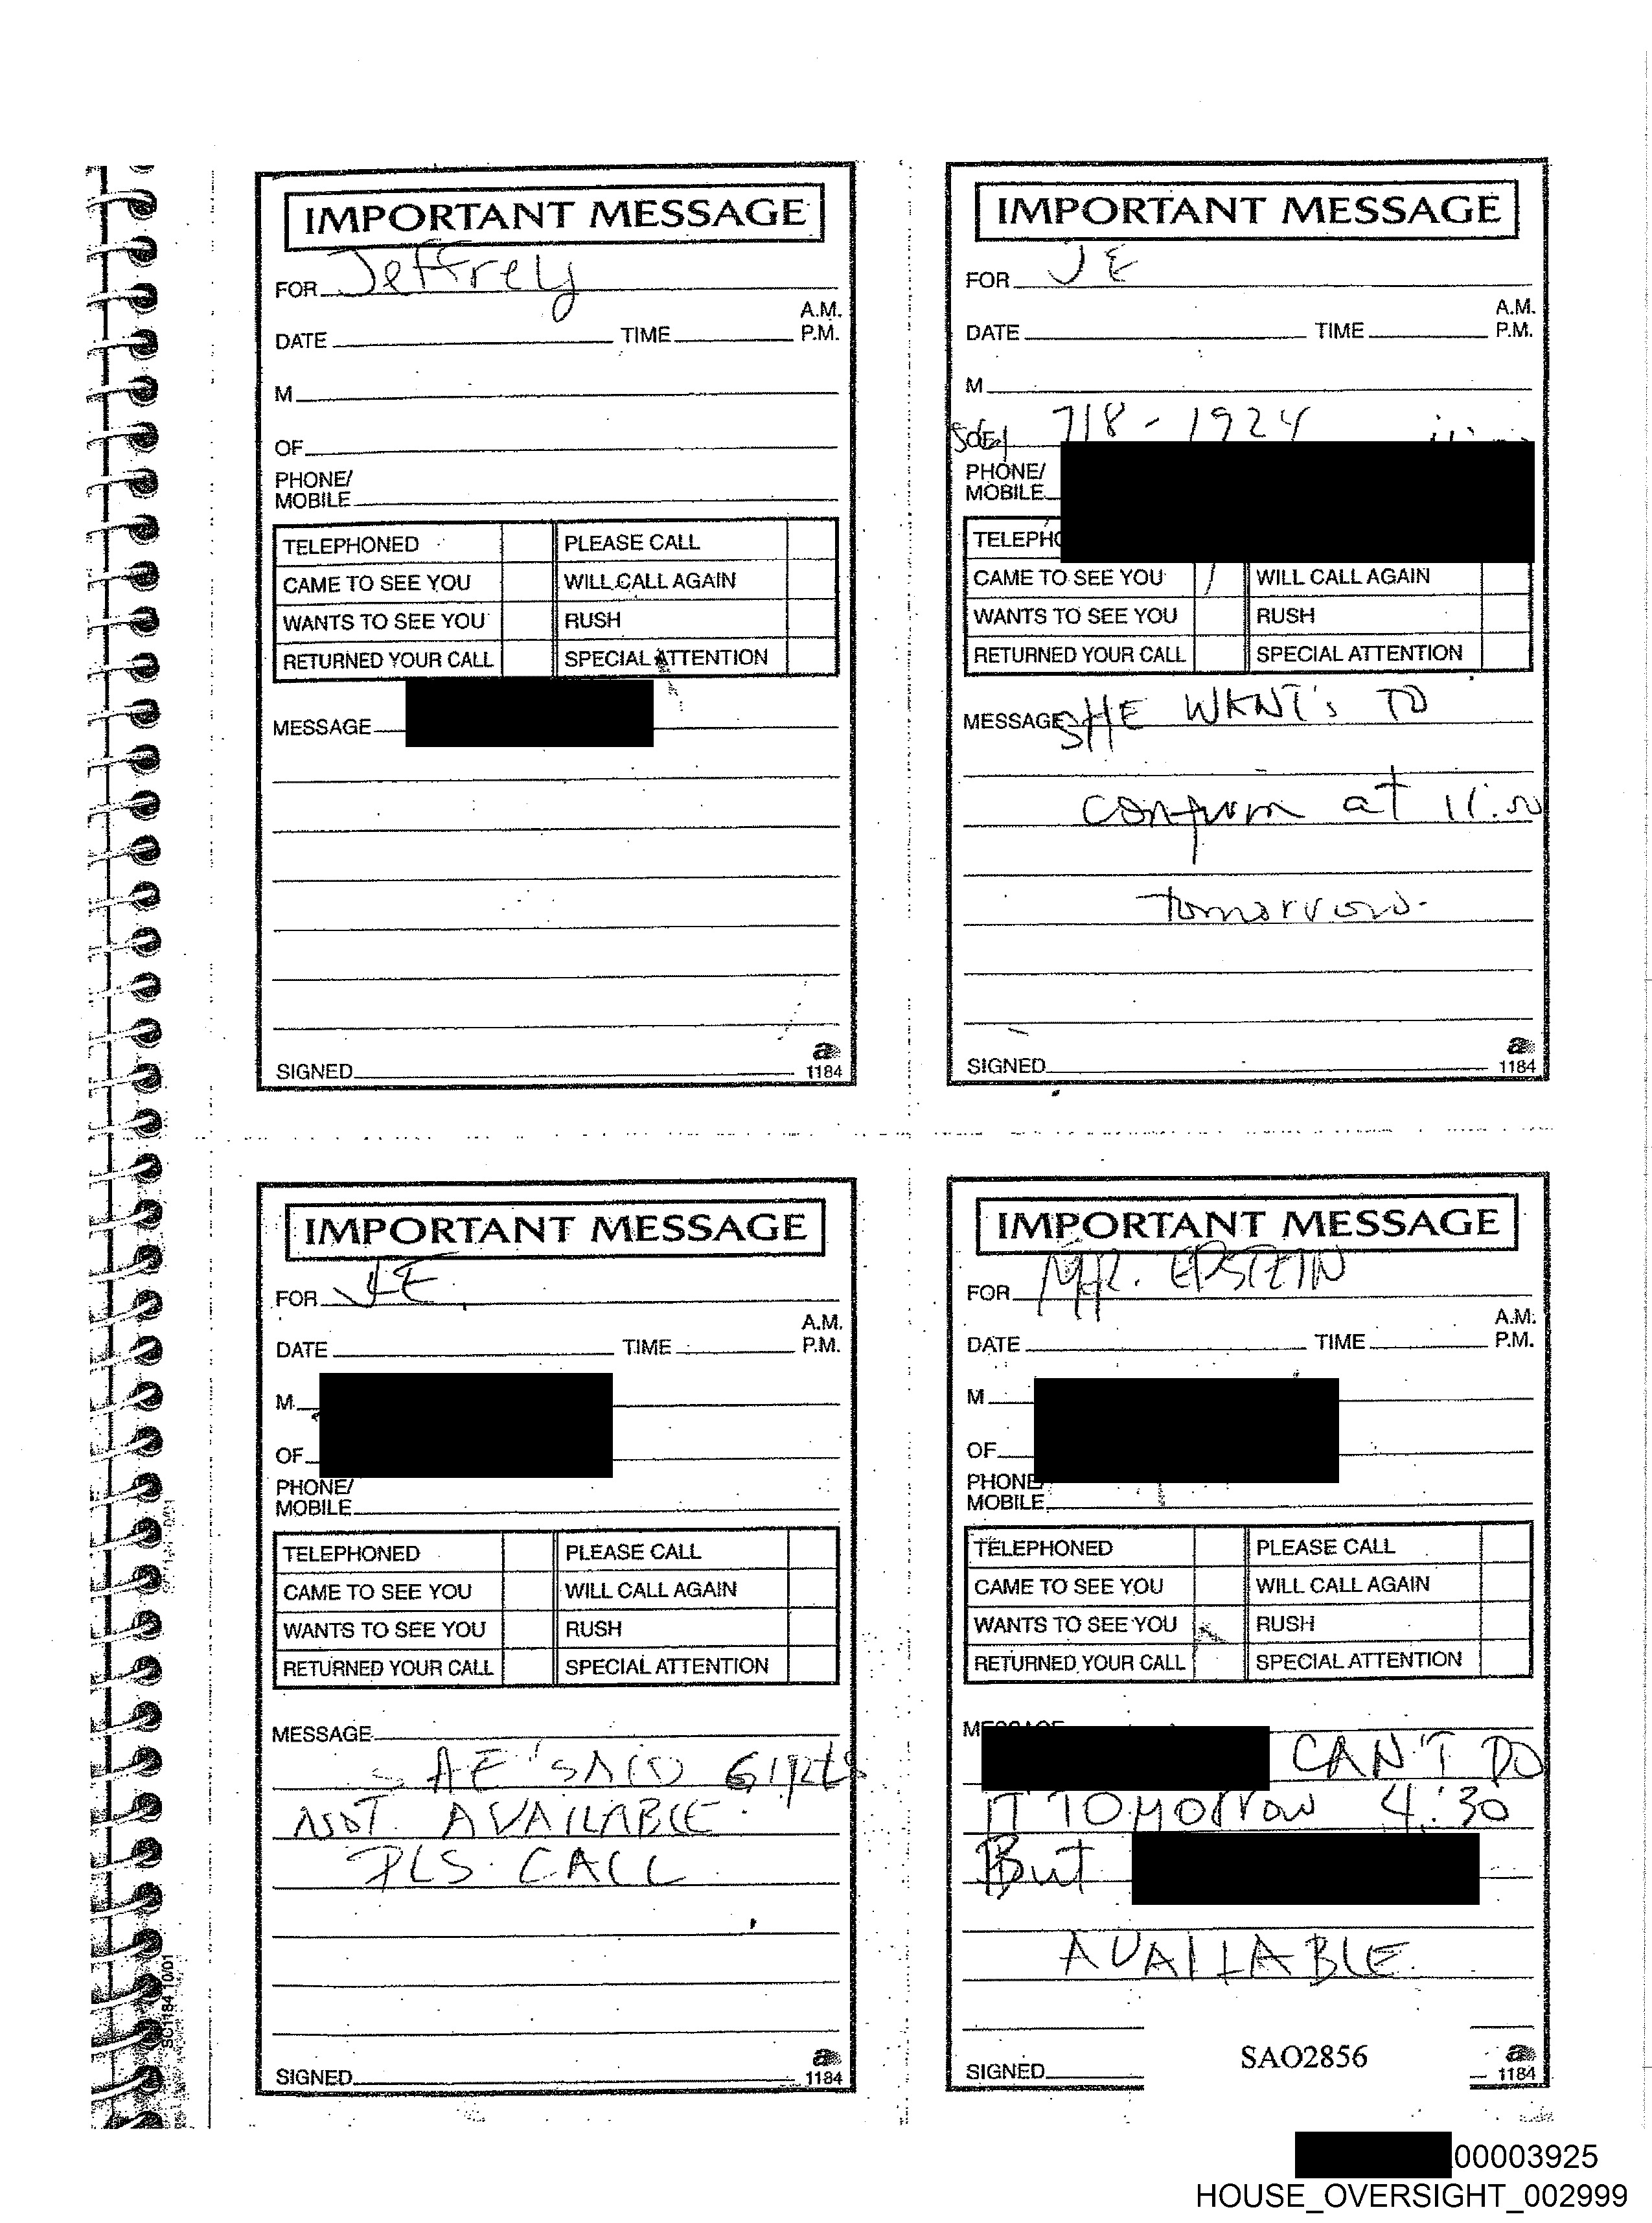 IMPORTANT MESSAGE
FOR Jeffrey
A.M.
DATE TIME P.M.
M
OF
PHONE/
MOBILE
TELEPHONED PLEASE CALL
CAME TO SEE YOU WILL CALL AGAIN
WANTS TO SEE YOU RUSH
RETURNED YOUR CALL SPECIAL ATTENTION
MESSAGE
SIGNED
a
1184
IMPORTANT MESSAGE
FOR JE
A.M.
DATE TIME P.M.
M
718-1924
PHONE/
MOBILE
CAME TO SEE YOU WILL CALL AGAIN
WANTS TO SEE YOU RUSH
RETURNED YOUR CALL SPECIAL ATTENTION
MESSAGE SHE WANT'S TO
confirm at 11:00
tomorrow.
SIGNED
a
1184
IMPORTANT MESSAGE
FOR JE
A.M.
DATE TIME P.M.
M
OF
PHONE/
MOBILE
TELEPHONED PLEASE CALL
CAME TO SEE YOU WILL CALL AGAIN
WANTS TO SEE YOU RUSH
RETURNED YOUR CALL SPECIAL ATTENTION
MESSAGE
SAID
NOT AVAILABLE
PLS. CALL
SIGNED
a
1184
IMPORTANT MESSAGE
FOR MR. EPSTEIN
A.M.
DATE TIME P.M.
M
OF
PHONE
MOBILE
TELEPHONED PLEASE CALL
CAME TO SEE YOU WILL CALL AGAIN
WANTS TO SEE YOU RUSH
RETURNED YOUR CALL SPECIAL ATTENTION
CAN'T DO
IT TOMORROW 4:30
But
AVAILABLE.
SIGNED
SAO2856
a
1184
SC1184 10/01
00003925
HOUSE_OVERSIGHT_002999